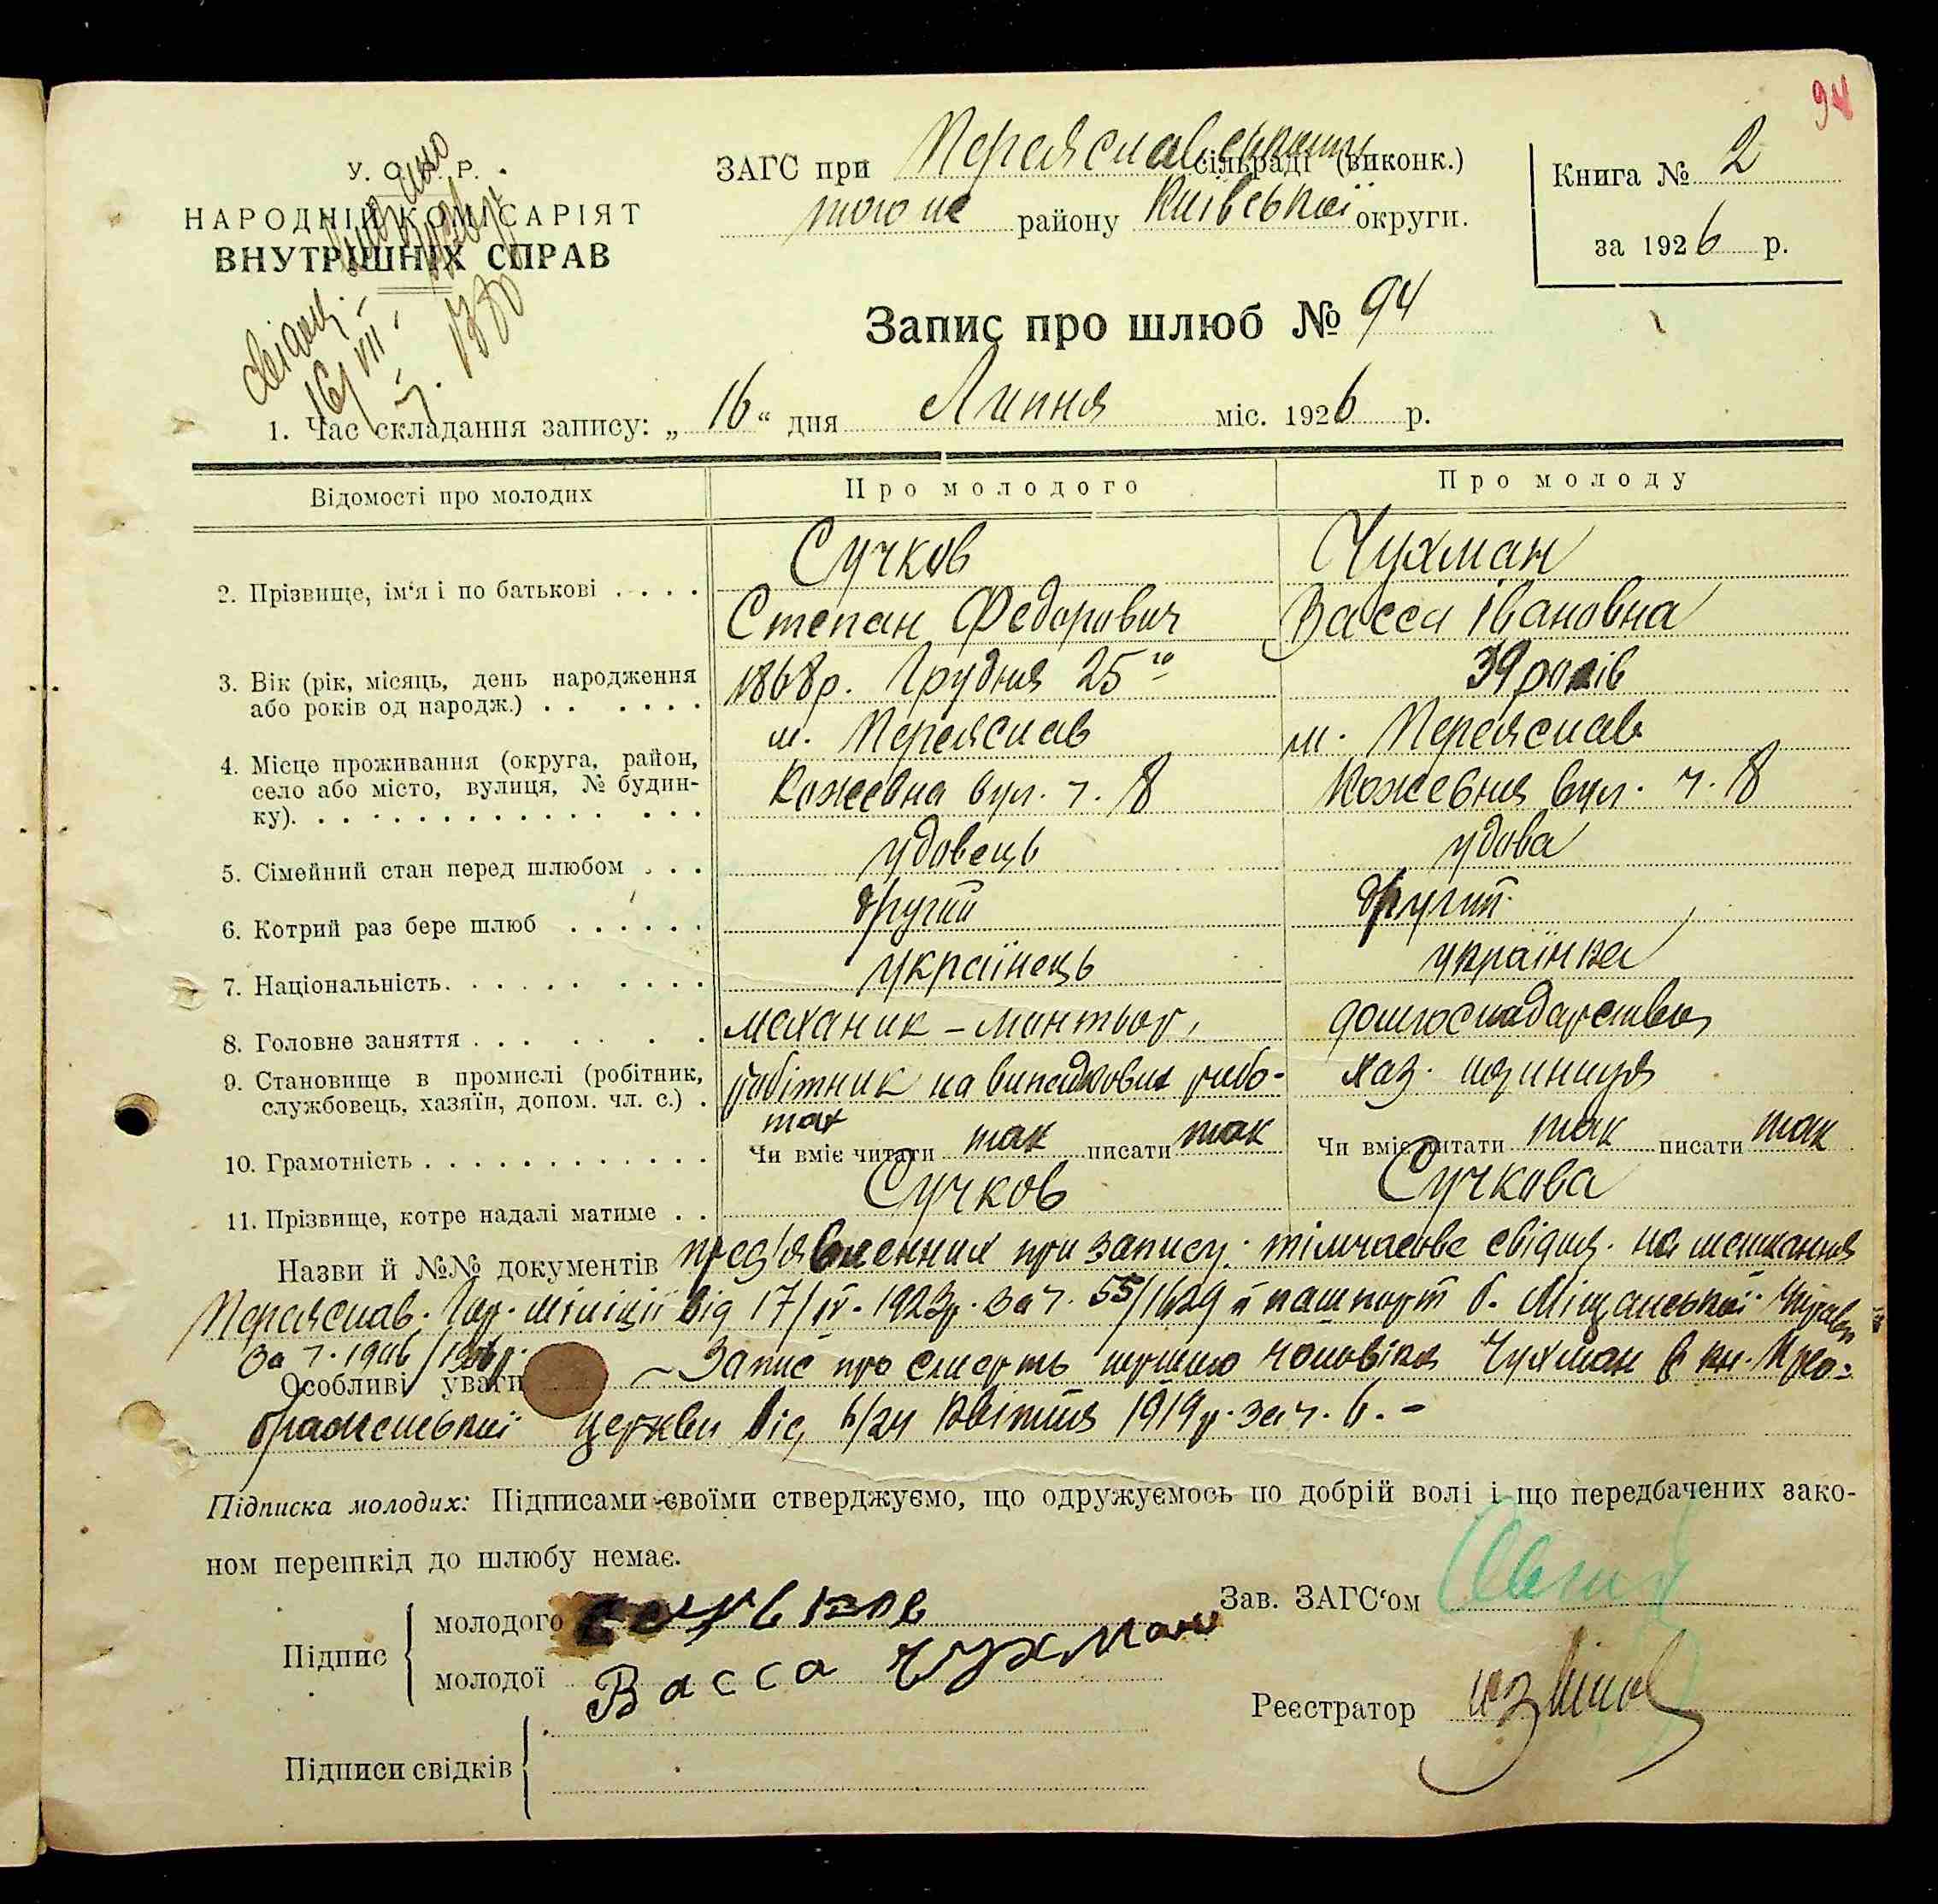 94
У. С. Р. Р.
НАРОДНІЙ КОМІСАРІЯТ
ВНУТРІШНІХ СПРАВ
16/VII
ЗАГС при Переяславському сільраді (виконк.)
того ж району Київської округи.
Книга № 2
за 1926 р.
Запис про шлюб № 94
1. Час складання запису: „16“ дня Липня міс. 1926 р.
Відомості про молодих Про молодого Про молоду
2. Прізвище, ім‘я і по батькові . . . . Сучков Чухман
Степан Федорович Васса Івановна
3. Вік (рік, місяць, день народження 1868р. Грудня 25го 39 років
або років од народж.) . . . . . .
4. Місце проживання (округа, район, м. Переяслав м. Переяслав
село або місто, вулиця, № будин- Кожевна вул. ч. 8 Кожевня вул. ч. 8
ку). . . . . . . . . . . . . . . .
5. Сімейний стан перед шлюбом . . . удовець удова
6. Котрий раз бере шлюб . . . . . . другий другий
7. Національність. . . . . . . . . . українець українка
8. Головне заняття . . . . . . . механик – монтьор, домгосподарство
9. Становище в промислі (робітник, робітник на випадкових робо- хаз.
службовець, хазяїн, допом. чл. с.) . тах
10. Грамотність . . . . . . . . . . . . Чи вміє читати так писати так Чи вміє читати так писати так
11. Прізвище, котре надалі матиме . . Сучков Сучкова
Назви й №№ документів пред'явленних при запису: тімчасове свідоц. на мешкання
Переяслав. міліції від 17/IV - 1923р. за ч. 55/1629 й пашпорт б. Міщанської Управи
за ч. 1906
Особливі уваги Запис про смерть першого чоловіка Чухман в кн. Прео-
браженської церкви від 6/24 квітня 1919р. за ч. 6. –
Підписка молодих: Підписами своїми стверджуємо, що одружуємось по добрій волі і що передбачених зако-
ном перешкід до шлюбу немає.
Зав. ЗАГС‘ом
Підпис молодого
молодої Васса Чухман
Реєстратор
Підписи свідків